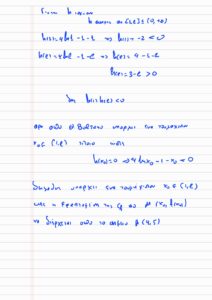 Είναι h συνεχής
h συνεχής στο [1,e] ⊆ (0,+∞)
h(1)=4ln1-1-1 ⇒ h(1)=-2<0
h(e)=4lne-1-e ⇒ h(e)=4-1-e
h(e)=3-e>0
h(1)h(e)<0
άρα από Θ Bolzano υπάρχει ένα τουλάχιστον
x₀∈(1,e) τέτοιο ώστε
h(x₀)=0 ⇒ 4lnx₀-1-x₀=0
υπάρχει ένα τουλάχιστον x₀∈(1,e)
ώστε η εφαπτομένη της Cf στο
να διέρχεται από το σημείο